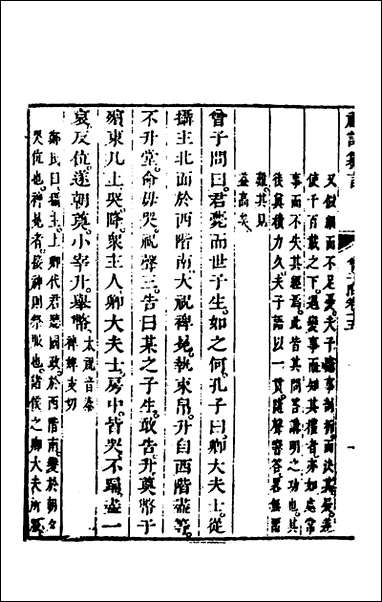 禮記集言
曾子問卷十五
一
又似顧而不足憂夫子隨事剖析而決其疑遂
使千百載之下遇變事而知其權者亦如處常
事而不失其經焉此皆其問答講明之功也其
後真積力久夫子語以一貫隨解容答畧無
難其見
益高矣
曾子問曰君薨而世子生如之何孔子曰卿大夫士從
攝主北面於西階南大祝裨冕執束帛升自西階盡等
不升堂命毋哭祝聲三告曰某之子生敢告升奠幣于
殯東几上哭降衆主人卿大夫士房中皆哭不踊盡一
哀反位遂朝奠小宰升舉幣
太祝音泰
裨婢支切
鄭氏曰攝主上卿代君聽國政於西階南變於朝夕
哭位也裨冕者接神則祭服也諸侯之卿大夫所服